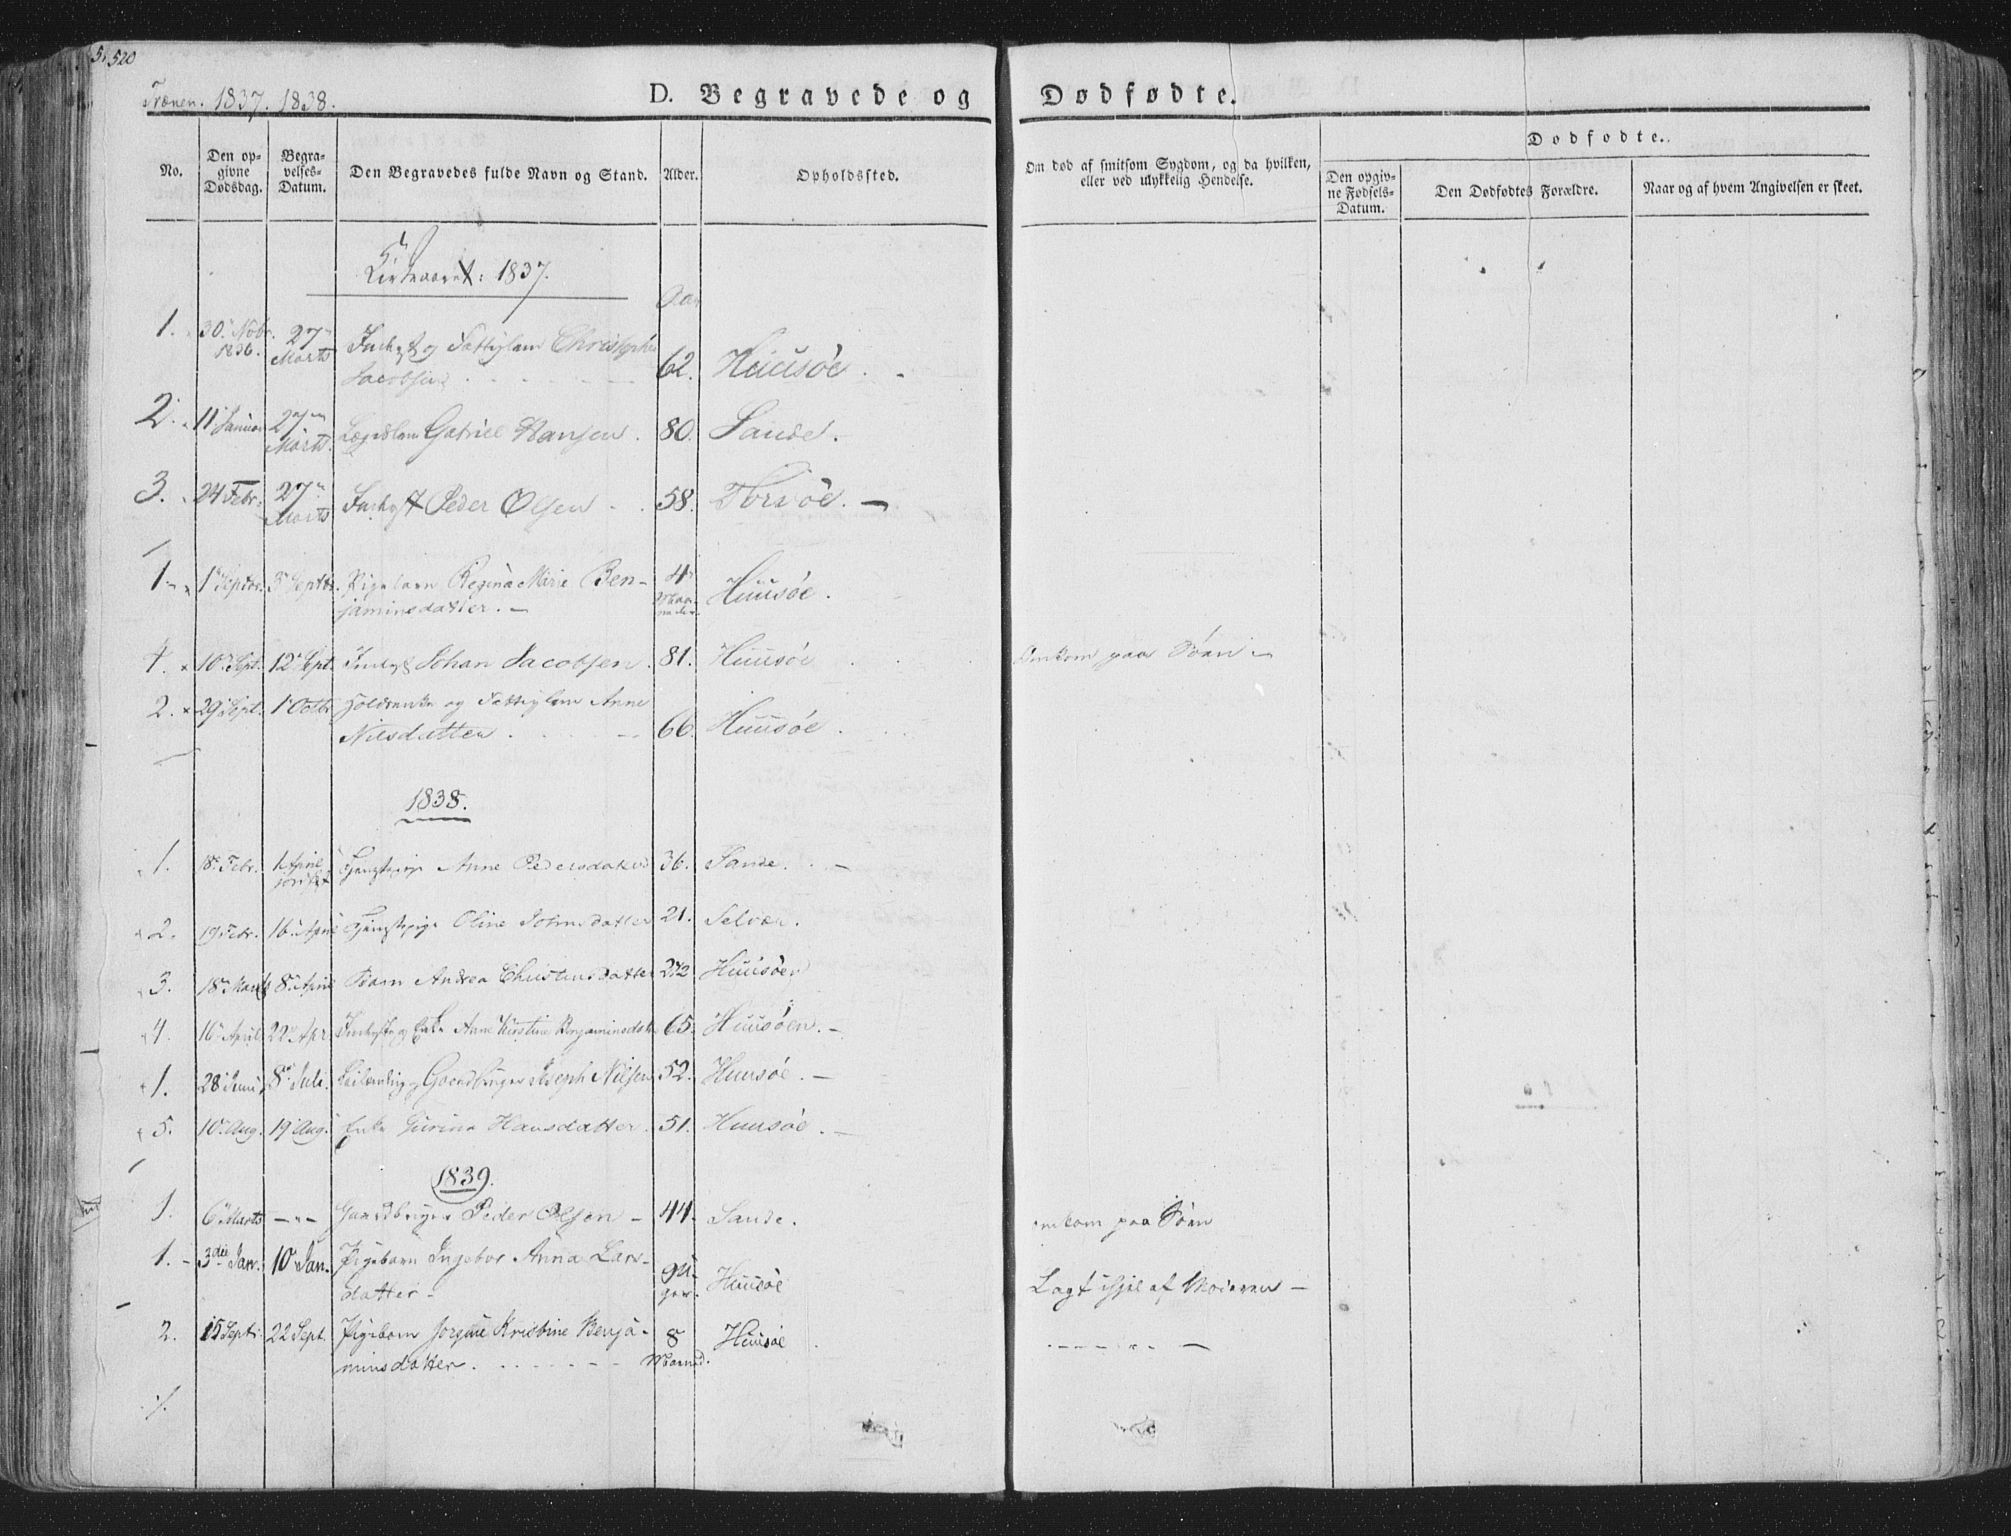 520
Trænen. 1837. 1838.
D. Begravede og Dødfødte.
No.
Den opgivne Dødsdag.
Begravelses-Datum.
Den Begravedes fulde Navn og Stand.
Alder.
Opholdssted.
Om død af smitsom Sygdom, og da hvilken,
eller ved ulykkelig Hendelse.
Dødfødte.
Den opgivne Fødsels-Datum.
Den Dødfødtes Forældre.
Naar og af hvem Angivelsen er skeet.
Kirkeaaret: 1837.
Aar
1. 30 Novbr. 1836. 27 Marts Indhyst og Fattiglem Christopher
Jacobsen 62. Huusøe.
2. 11 Januar 27 Marts Lægdslem Gabriel Hansen. 80. Sande.
3. 24 Febr. 27 Marts Indhyst Peder Olsen 58. Torvøe. —
1. 1 Septbr. 3 Septbr. Pigebarn Regina Marie Ben-
jaminsdatter. — 4 Maaneder Huusøe.
4. 10 Sept. 12 Sept. Indhyst Johan Jacobsen. 81. Huusøe Omkom paa Søen —
2. 29 Sept. 1 Octbr. og Fattiglem Anne
Nilsdatter 66. Huusøe.
1838.
1. 18 Febr. 1 April Tjenstepige Anne Pedersdatter 36. Sande. —
2. 19 Febr. 16 April Tjenstepige Oline Johnsdatter 21. Selvær.
3. 18 Marts 8 April Barn Andrea Christensdatter Huusøen
4. 16 April 22 Apr. Indhyst og Enke Anne Kirstine Benjaminsdatter 65. Huusøen. —
1. 28 Juni 8 Juli. Leilænding og Gaardbruger Joseph Nilsen 52. Huusøe. —
5. 10 Aug. 19 Aug. Enke Gurina Hansdatter. 51. Huusøe. —
1839.
1. 6 Marts —"— Gaardbruger Peder Olsen — 44. Sande. omkom paa Søen
1. 3die Jan. 10 Jan. Pigebarn Ingebor Anna Lars-
datter — Huusøe Lagt ihjel af Moderen —
2. 15 Sept. 22 Sept. Pigebarn Jorgine Kristine Benja-
minsdatter. 8 Maaned. Huusøe